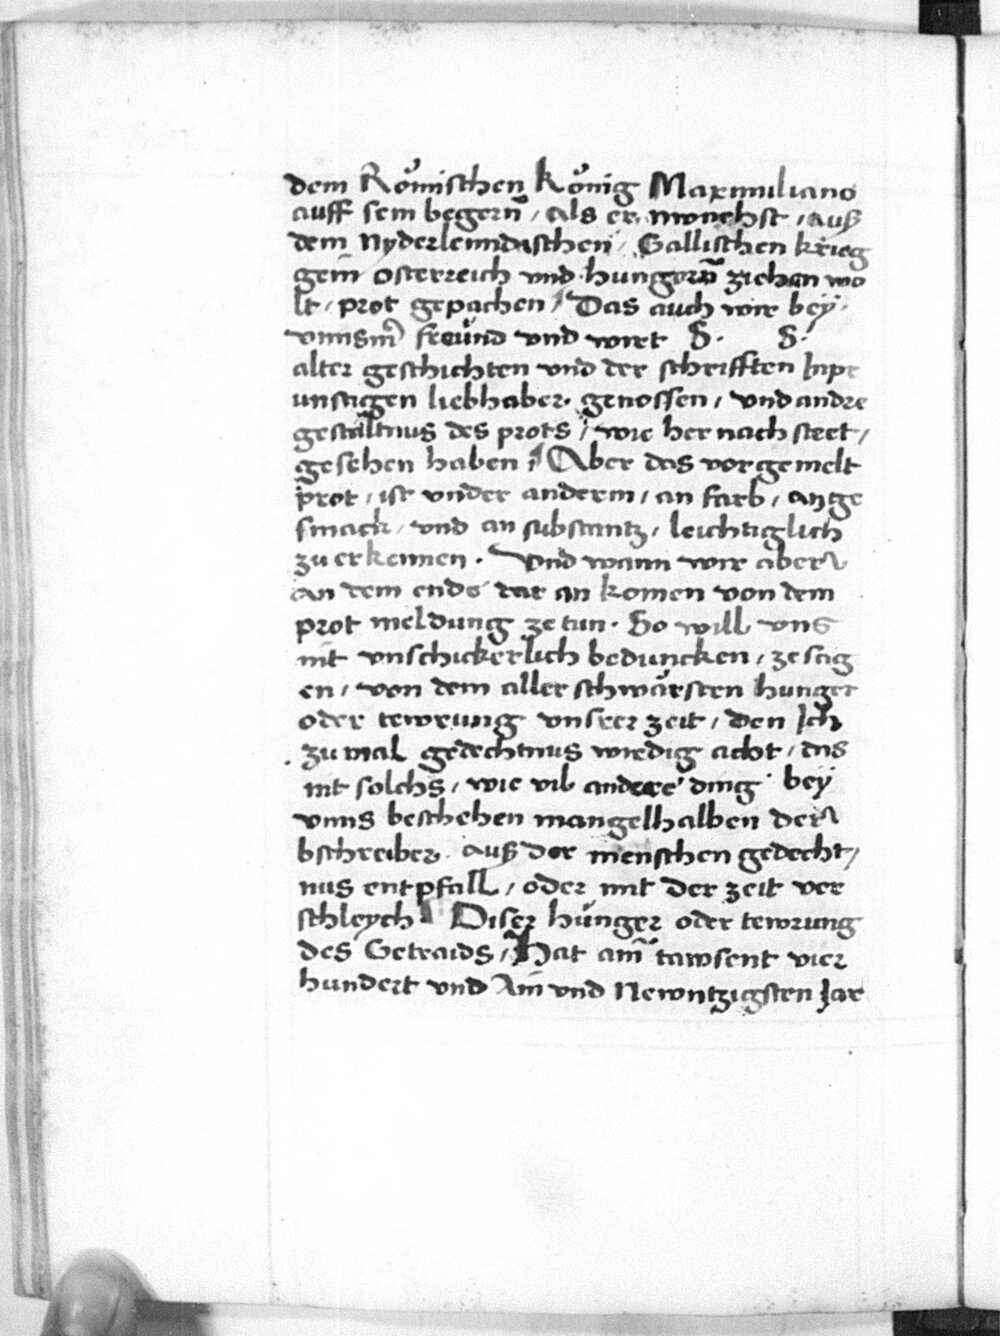 dem Römischen König Maximiliano
auff sein begern̄ / als er monehst / auß
dem Nyderlenndischen / Gallischen krieg
gein̄ osterreich vnd hungern̄ ziehen wo
lt / prot gepachen / Das auch wir bey
vnnsm̄ freünd vnd wirt S. S.
alter geschichten vnd der schrifften Inpr
unstigen liebhaber. genossen / vnd andre
gestaltnus des prots / wie her nach steet /
gesehen haben / Aber das vorgemelt
prot / ist vnder anderm / an farb / an ge
smack / vnd an substantz / leichtiglich
zu erkennen . Vnd wann wir aber
an dem ends dar an komen von dem
prot meldung ze tun . So will vns
nit vnschickerlich beduncken / ze sag
en / von dem aller schwärsten hunger
oder tewrung vnser zeit / den Ich
zu mal gedechtnus wirdig acht / das
nit solchs / wie vil andere ding bey
vnns beschehen mangelhalben der
bschreiber auß der menschen gedecht /
nus entpfall / oder mit der zeit ver
schleych Diser hünger oder tewrung
des Getraids / Hat am̄ tawsent vier
hundert vnd Ain̄ vnd Newntzigsten Jar